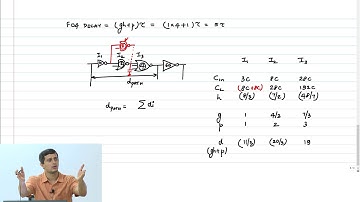 FO4 DELAY = (gh+p)τ = (1×4+1)τ = 5τ
I1 I2 I3
dpath
dpath = Σ di
I1 I2 I3
Cin 3C 8C 28C
CL (8C+8C) 28C 192C
h
g 1 4/3 7/3
p 1 2 3
d (11/3) (20/3) 19
(gh+p)